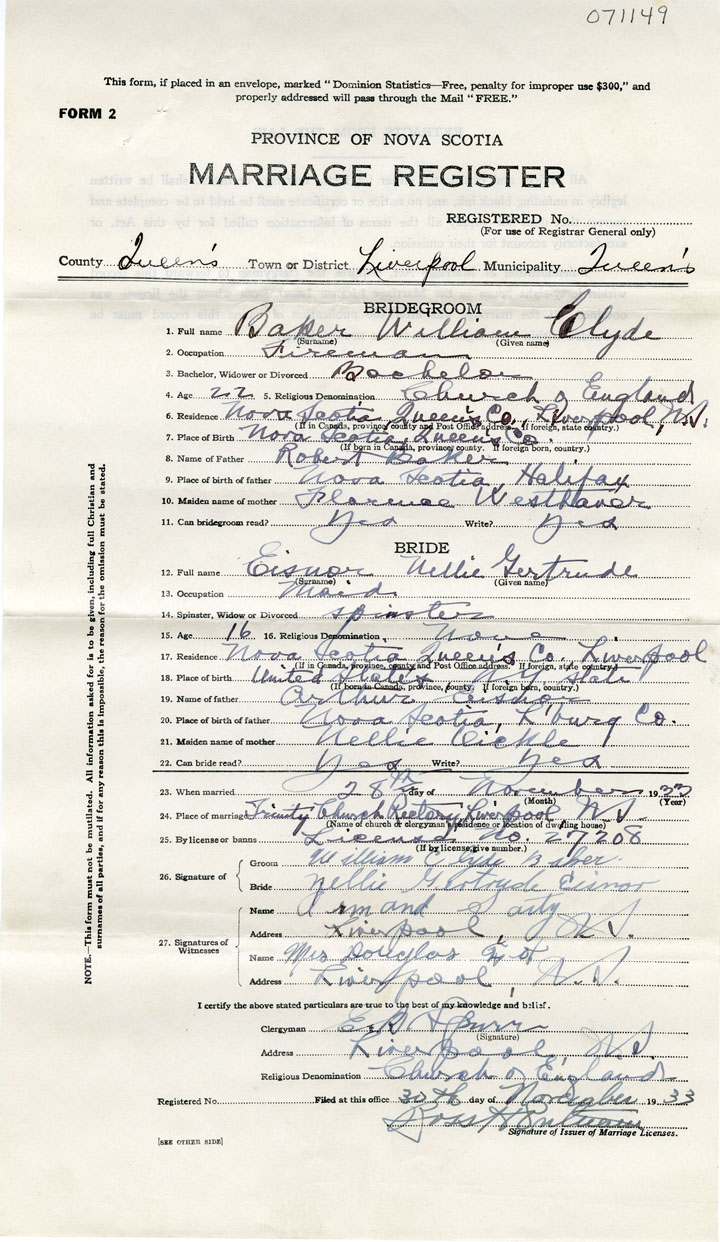 071149
This form, if placed in an envelope, marked "Dominion Statistics—Free, penalty for improper use $300," and
properly addressed will pass through the Mail "FREE."
FORM 2
PROVINCE OF NOVA SCOTIA
MARRIAGE REGISTER
REGISTERED No.
(For use of Registrar General only)
County Queen's Town or District Liverpool Municipality Queen's
BRIDEGROOM
1. Full name Baker William Clyde
(Surname) (Given name)
2. Occupation Fireman
3. Bachelor, Widower or Divorced Bachelor
4. Age 22 5. Religious Denomination Church of England
6. Residence Nova Scotia, Queen's Co., Liverpool, N.S.
(If in Canada, province, county and Post Office address. If foreign, state country.)
7. Place of Birth Nova Scotia, Queen's Co.
(If born in Canada, province, county. If foreign born, country.)
8. Name of Father Robert Baker
9. Place of birth of father Nova Scotia, Halifax
10. Maiden name of mother Florence Westhaver
11. Can bridegroom read? Yes Write? Yes
BRIDE
12. Full name Eisnor Nellie Gertrude
(Surname) (Given name)
13. Occupation Maid
14. Spinster, Widow or Divorced spinster
15. Age 16 16. Religious Denomination None
17. Residence Nova Scotia Queen's Co., Liverpool
(If in Canada, province, county and Post Office address. If foreign, state country.)
18. Place of birth United States N.Y. State
(If born in Canada, province, county. If foreign born, country.)
19. Name of father Arthur Eisnor
20. Place of birth of father Nova Scotia, L'burg Co.
21. Maiden name of mother Nellie
22. Can bride read? Yes Write? Yes
23. When married 28th day of November 1933
(Month) (Year)
24. Place of marriage Trinity Church Rectory, Liverpool N.S.
(Name of church or clergyman's residence or location of dwelling house)
25. By license or banns License No. 27208
(If by license, give number.)
26. Signature of
Groom William Clyde Baker
Bride Nellie Gertrude Eisnor
27. Signatures of Witnesses
Name
Address Liverpool, N.S.
Name Mrs Douglas
Address Liverpool, N.S.
I certify the above stated particulars are true to the best of my knowledge and belief.
Clergyman
(Signature)
Address Liverpool, N.S.
Religious Denomination Church of England
Registered No. Filed at this office 30th day of November 1933
Signature of Issuer of Marriage Licenses.
[SEE OTHER SIDE]
NOTE.—This form must not be mutilated. All information asked for is to be given, including full Christian and
surnames of all parties, and if for any reason this is impossible, the reason for the omission must be stated.